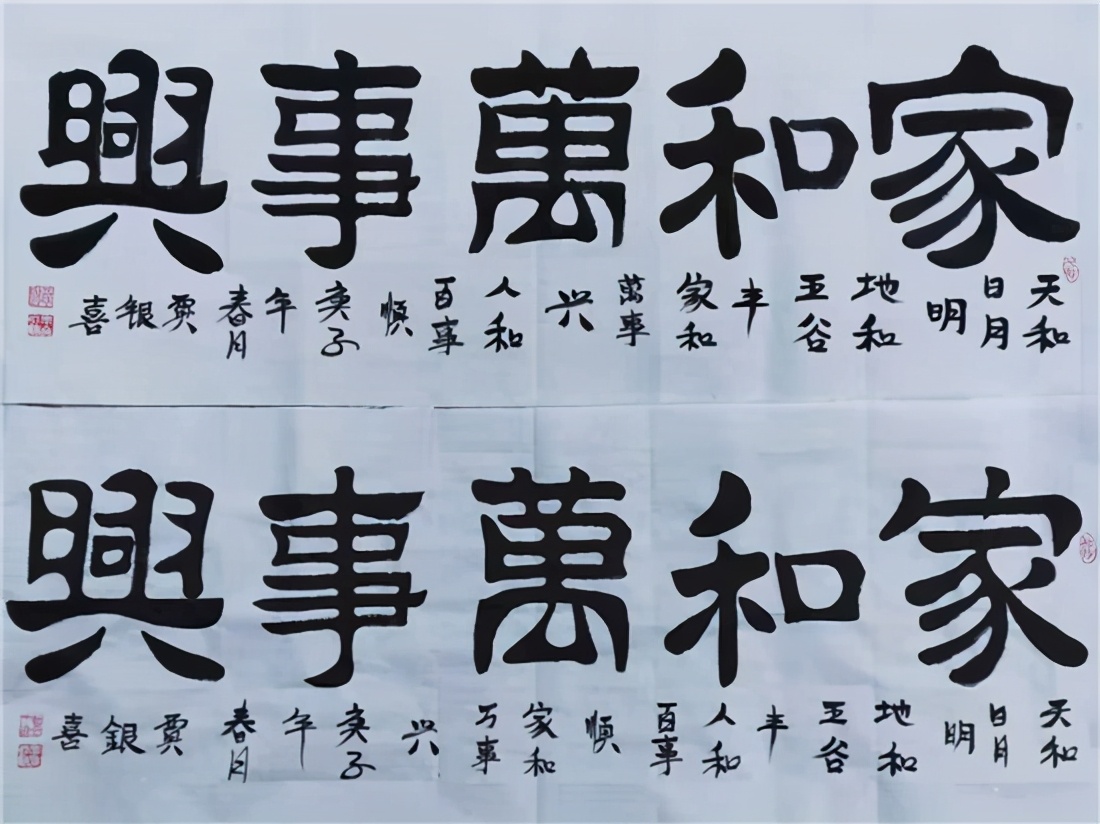 家和萬事興
天和日月明地和五谷丰家和萬事兴人和百事順庚子年春月賈銀喜
家和萬事興
天和日月明地和五谷丰人和百事順家和万事兴庚子年春月賈銀喜